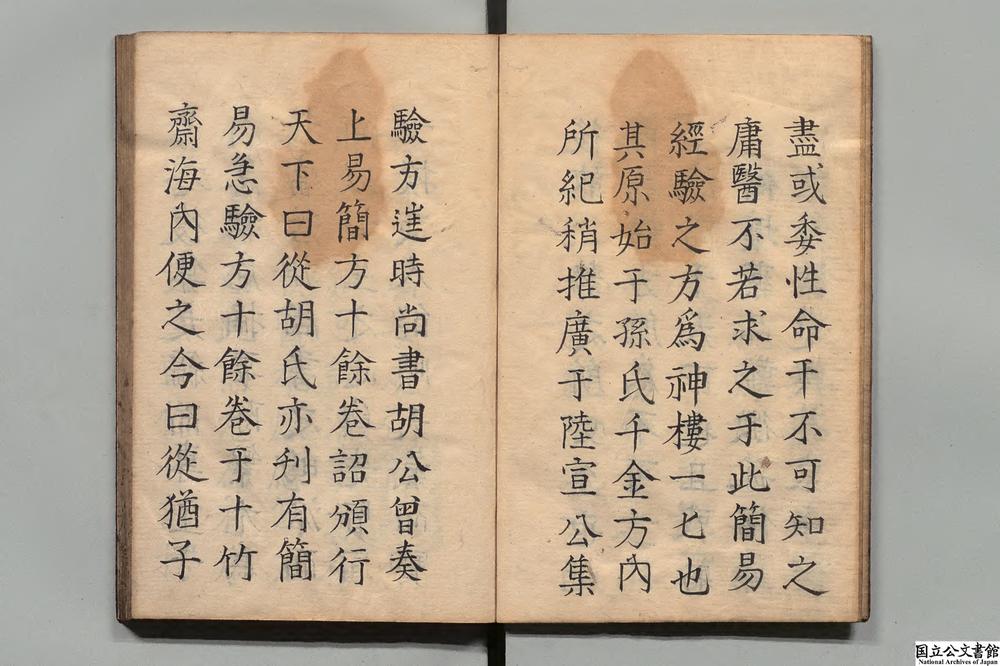 盡或委性命干不可知之
庸醫不若求之于此簡易
經驗之方爲神樓一匕也
其原始于孫氏千金方內
所紀稍推廣于陸宣公集
驗方逹時尚書胡公曾奏
上易簡方十餘卷詔頒行
天下曰從胡氏亦刋有簡
易急驗方十餘卷于十竹
齋海內便之今曰從猶子
国立公文書館
National Archives of Japan